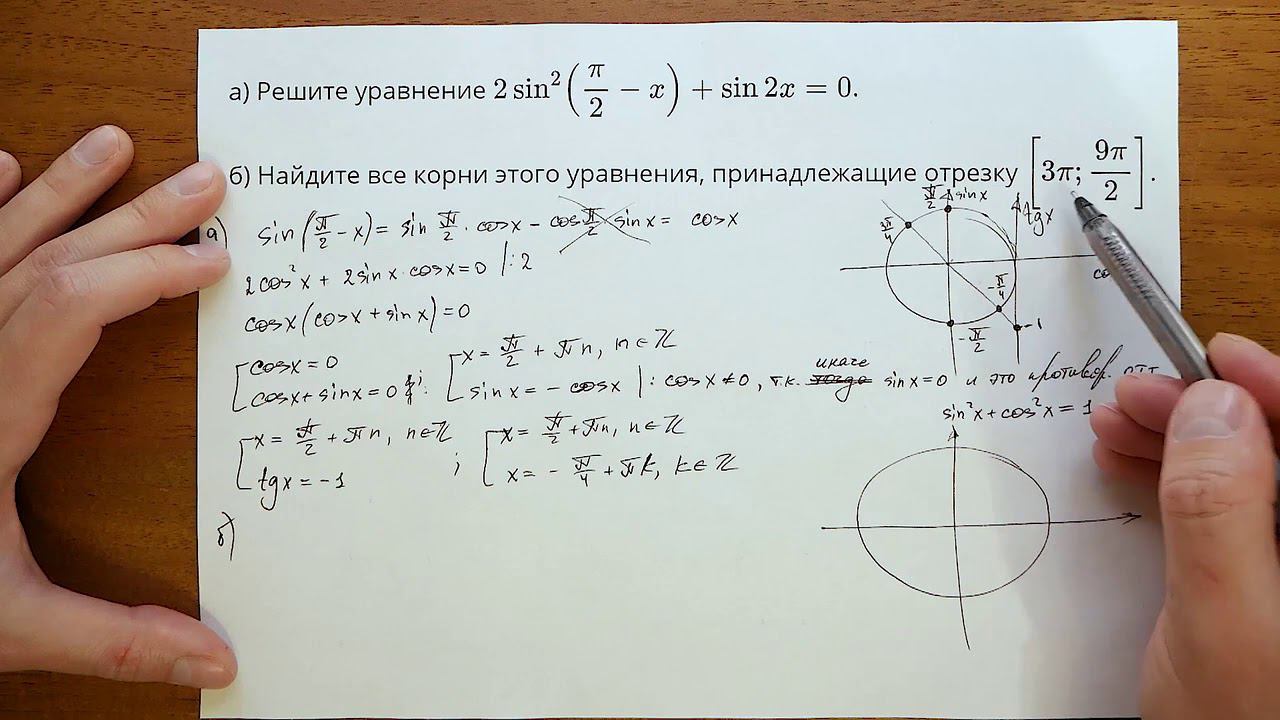 а) Решите уравнение 2 sin²(π/2 − x) + sin 2x = 0.
б) Найдите все корни этого уравнения, принадлежащие отрезку [3π; 9π/2].
а) sin(π/2 − x) = sin π/2 · cosx − cos π/2 sinx = cosx
2cos²x + 2sinx·cosx = 0 |:2
cosx(cosx + sinx) = 0
[cosx = 0
cosx + sinx = 0 ; [x = π/2 + πn, n∈ℤ
sinx = − cosx |: cosx ≠ 0, т.к. иначе тогда sinx = 0 и это противор.
sin²x + cos²x = 1
[x = π/2 + πn, n∈ℤ
tgx = −1 ; [x = π/2 + πn, n∈ℤ
x = − π/4 + πk, k∈ℤ
б)
π/2 sinx
tgx
π/4
co
−π/4
−1
−π/2